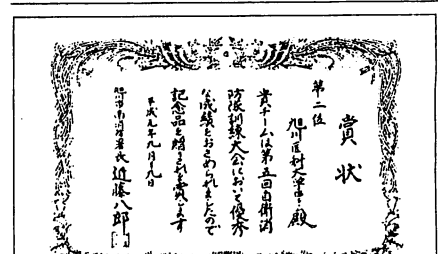 賞状
第二位
旭川医科大学 殿
貴チームは第五回自衛消
防隊訓練大会において優秀
な成績をおさめられましたので
記念品を贈りこれを賞します
平成九年九月十九日
旭川市南消防署長 近藤八郎